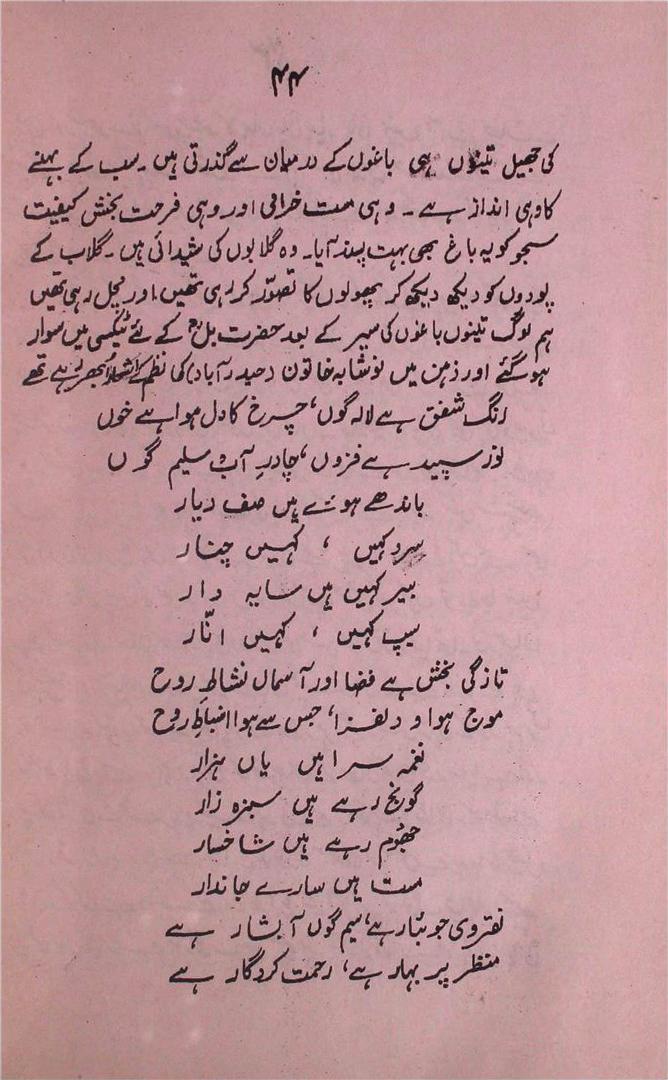 ۴۴
کی جھیل تینوں ہی باغوں کے درمیان سے گذرتی ہیں ۔ سب کے بہنے
کا وہی انداز ہے ۔ وہی مست خرامی اور وہی فرحت بخش کیفیت
سجو کو یہ باغ بھی بہت پسند آیا ۔ وہ گلابوں کی شیدائی ہیں ۔ گلاب کے
پودوں کو دیکھ دیکھ کر پھولوں کا تصوّر کر رہی تھیں اور مچل رہی تھیں
ہم لوگ تینوں باغوں کی سیر کے بعد حضرت بل کے لئے ٹیکسی میں سوار
ہو گئے اور ذہن میں نوشابہ خاتون (حیدرآباد) کی نظم کے اشعار ابھر رہے تھے
رنگ شفق ہے لالہ گوں، چرخ کا دل ہوا ہے خوں
نور سپید ہے فزوں، چادرِ آب سیم گوں
باندھے ہوئے ہیں صف دیار
سرو کہیں ، کہیں چنار
بیر کہیں ہیں سایہ دار
سیب کہیں ، کہیں انّار
تازگی بخش ہے فضا اور آسماں نشاطِ روح
موج ہوا و دلفزا، جس سے ہوا انبساطِ روح
نغمہ سرا ہیں یاں ہزار
گونج رہے ہیں سبزہ زار
جھُوم رہے ہیں شاخسار
مست ہیں سارے جاندار
نقروی جوئبار ہے، سیم گوں آبشار ہے
منظر پر بہار ہے، رحمت کردگار ہے